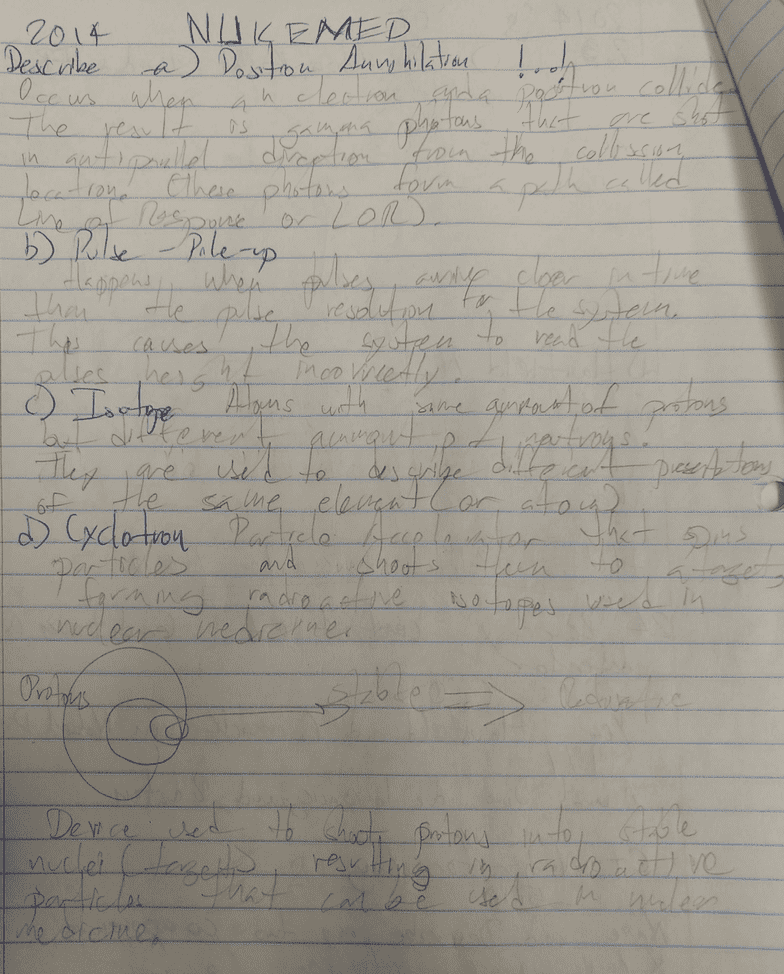 2014 NUKEMED
Describe a) Positron Annihilation !...!
Occurs when an electron and a positron collide.
The result is gamma photons that are shot
in antiparallel direction from the collision
location. (these photons form a path called
Line of Response or LOR).
b) Pulse - Pile-up
Happens when pulses arrive closer in time
than the pulse resolution for the system.
This causes the system to read the
pulses height incorrectly.
c) Isotope Atoms with same ammount of protons
but different ammount of neutrons.
They are used to describe different
of the same element (or atom)
d) Cyclotron Particle Accelerator that spins
particles and shoots them to a target,
forming radioactive isotopes used in
nuclear medicine.
Protons stable ⇒ Radioactive
Device used to shoot protons into stable
nuclei (target), resulting in radioactive
particles that can be used in nuclear
medicine.